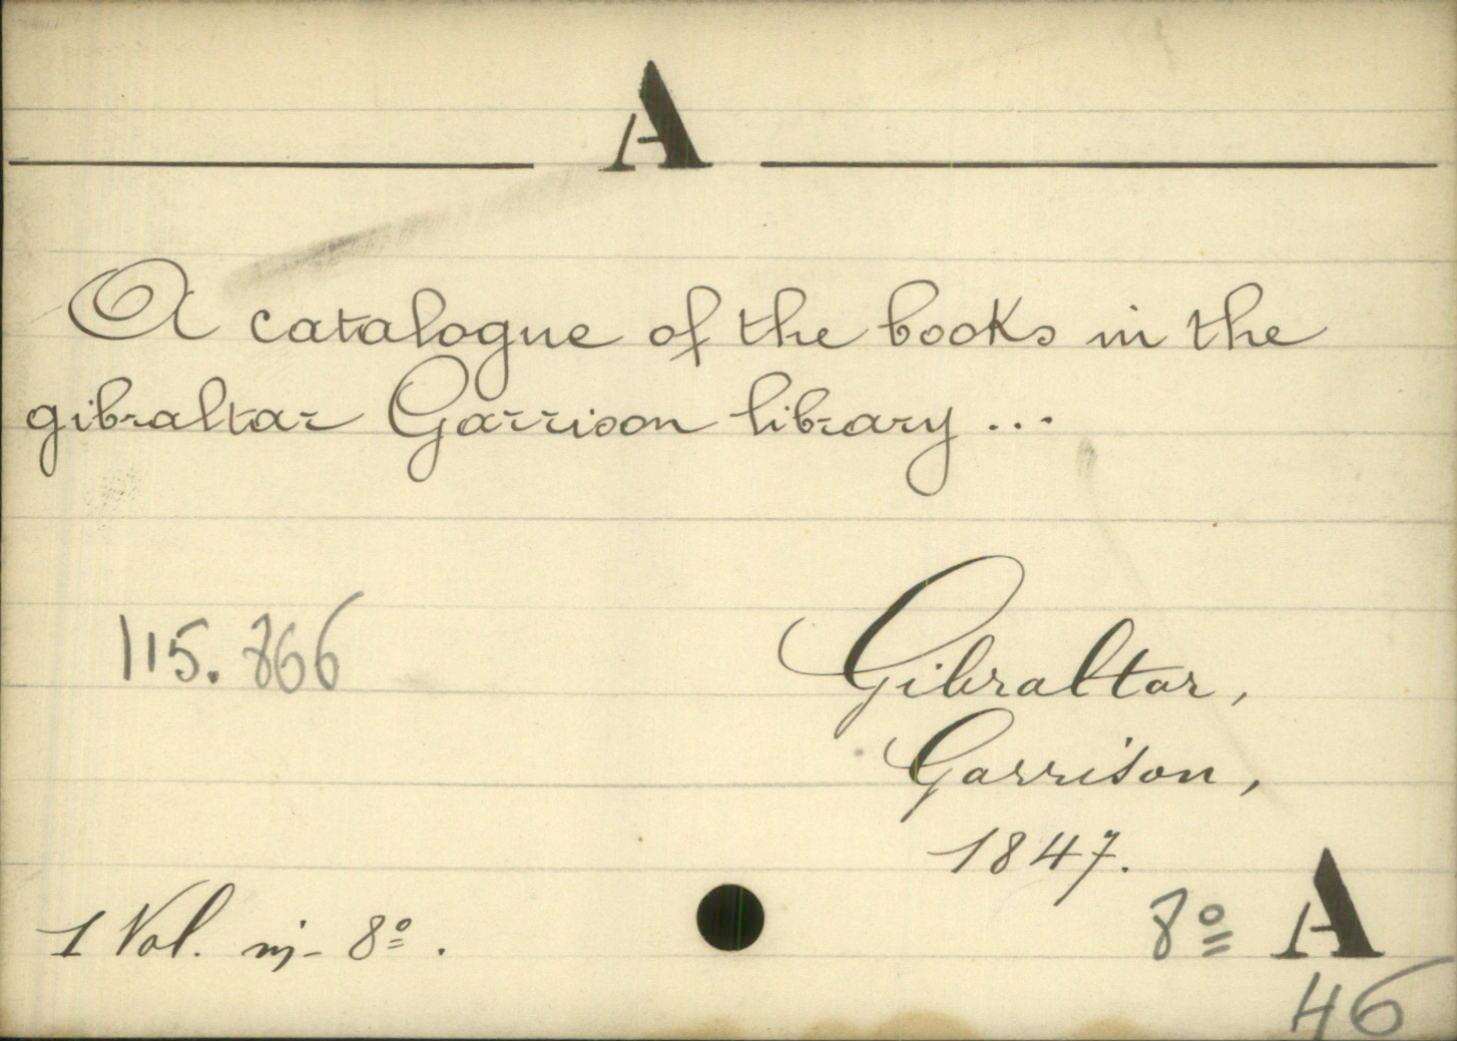 A
A catalogue of the books in the
gibraltar Garrison library ...
115.866
Gibraltar,
Garrison,
1847.
1 Vol. in- 8º.
8º A
46